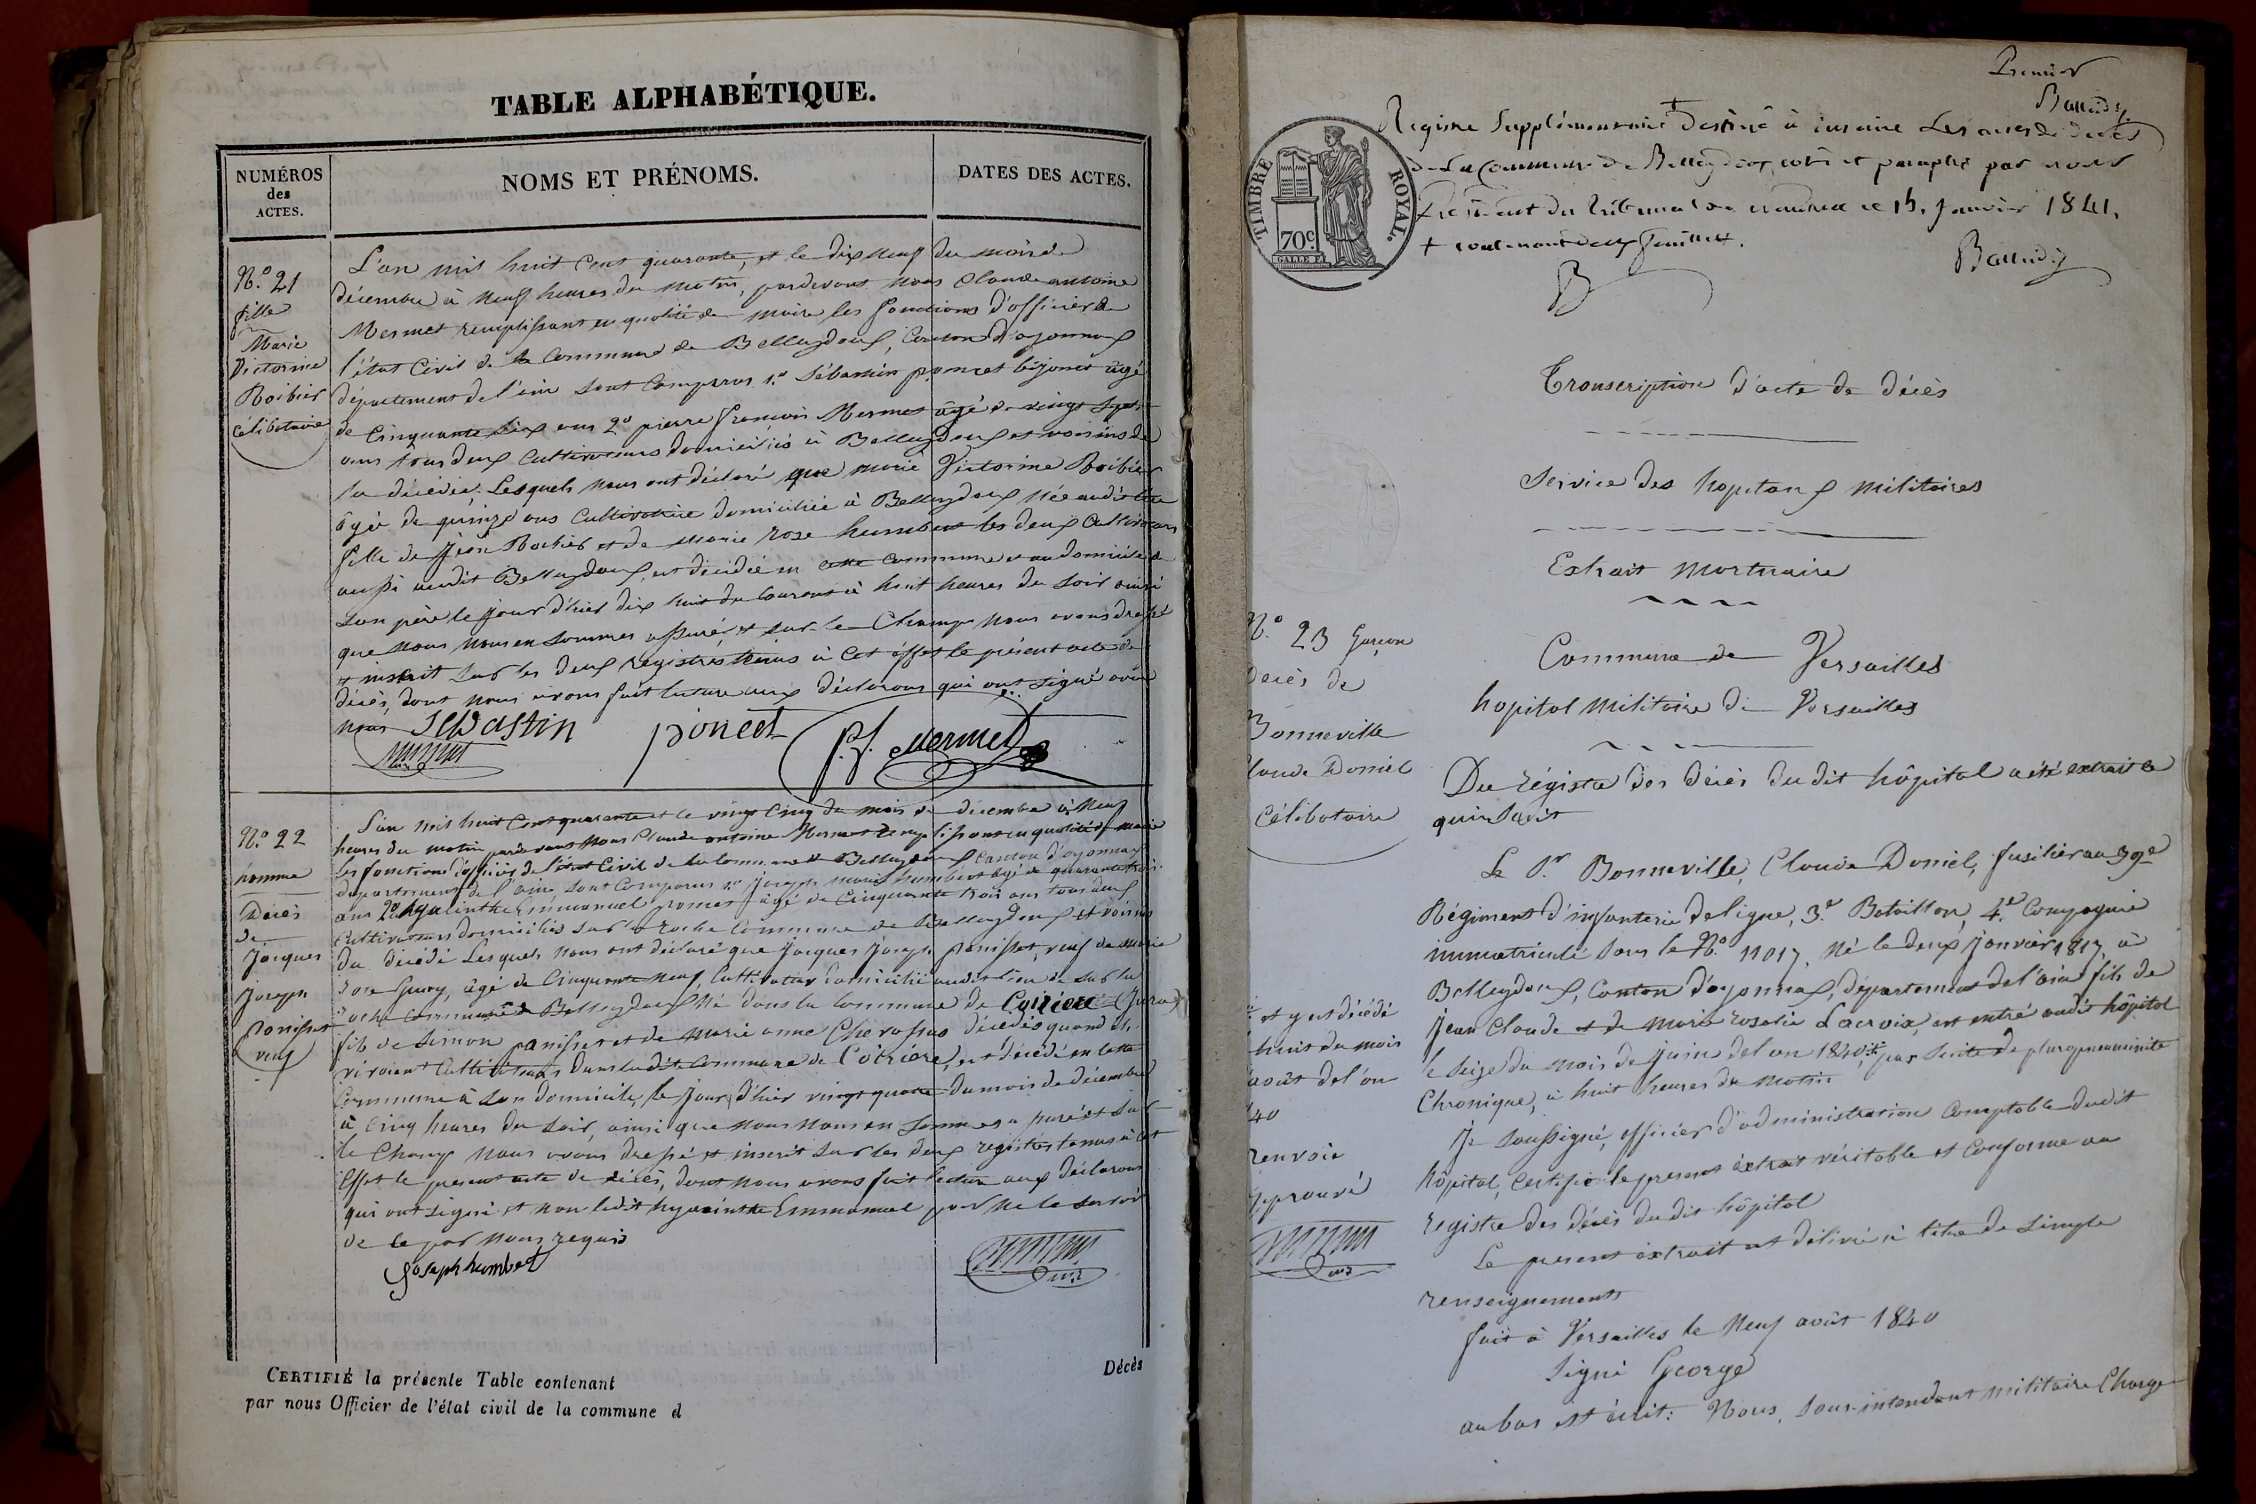 TABLE ALPHABÉTIQUE.
NUMÉROS
des
ACTES.
NOMS ET PRÉNOMS.
DATES DES ACTES.
N.º 21
fille
Marie
Victorine
Roibier
célibataire
L'an mil huit cent quarante, et le dix neuf du mois de
décembre à neuf heures du matin, pardevant nous Claude antoine
Mermet remplissant en qualité de maire les fonctions d'officier de
l'état Civil de la Commune de Belleydoux, Canton d'oyonnax
département de l'ain sont Comparus 1.º Sébastien poncet bijonet âgé
de Cinquante six ans 2º pierre françois Mermet âgé de vingt sept
ans tous deux Cultivateurs domiciliés à Belleydoux et voisins de
la décédée. Lesquels nous ont déclaré que marie Victorine Roibier
âgée de quinze ans Cultivatrice domiciliée à Belleydoux née audit lieu
fille de Jean Roibier et de Marie rose humbert les deux Cultivateurs
aussi audit Belleydoux, est décédée en cette Commune et au domicile de
son père le jour d'hier dix huit du Courant à huit heures du soir ainsi
que nous nous en sommes assuré, et sur-le-Champ nous avons dressé
et inscrit sur les deux registres tenus à cet effet le présent acte de
décès, dont nous avons fait lecture aux déclarans qui ont signé avec
nous Sebastin poncet p.f. mermet
N.º 22
homme
Décès
de
Jacques
Joseph
Panisset
veuf
L'an mil huit Cent quarante et le vingt Cinq du mois de décembre à Neuf
heures du matin pardevant nous Claude antoine Mermet remplissant en qualité de maire
les fonctions d'officier de l'état Civil de la Commune de Belleydoux Canton d'oyonnax
département de l'ain, sont Comparus 1º Joseph marie humbert âgé de quarante trois
ans 2º hyacinthe Emmanuel poncet âgé de Cinquante trois ans tous deux
Cultivateurs domiciliés sur la roche Commune de Belleydoux et voisins
du décédé Lesquels nous ont déclaré que Jacques Joseph panisset, veuf de marie
rose Gury, âgé de Cinquante neuf, Cultivateur domicilié audit lieu de sur la
roche Commune de Belleydoux Né dans la Commune de Coirière (Jura)
fils de Simon panisset et de marie anne Chevassus décédés quand ils
vivaient Cultivateurs dans ladite Commune de Coirière, est décédé en cette
Commune à son domicile, le jour d'hier vingt quatre du mois de décembre
à Cinq heures du soir, ainsi que nous nous en sommes assuré et sur
le Champ nous avons dressé et inscrit sur les deux registres tenus à cet
Effet le présent acte de décès, dont nous avons fait lecture aux déclarans
qui ont signé et non ledit hyacinthe Emmanuel pour ne le savoir
de ce par nous requis
Joseph humbert
CERTIFIÉ la présente Table contenant
Décès
par nous Officier de l'état civil de la commune d
Premier
Baudin
Registre Supplémentaire + destiné à inscrire Les actes de décès
de La Commune de Belleydoux, coté et paraphé par nous
Président du tribunal de nantua ce 15. Janvier 1841,
+ contenant deux feuillets.
B
Baudin
TIMBRE ROYAL.
70c
Transcription d'acte de décès
Service des hopitaux militaires
Extrait Mortuaire
Commune de Versailles
hopital Militaire de Versailles
N.º 23 Garçon
Décès de
Bonneville
Claude Daniel
Célibataire
Du régistre des décès du dit hôpital a été extrait ce
qui suit
Le S.r Bonneville, Claude Daniel, fusilier au 39e
Régiment d'infanterie de ligne, 3.e Bataillon, 4.e Compagnie
immatriculé sous le Nº. 11017, né le deux janvier 1817, à
Belleydoux, Canton d'oyonnax, département de l'ain fils de
Jean Claude et de Marie rosalie Lacroix, est entré audit hôpital
le Seize du mois de Juin de l'an 1840 + par suite de pleuropneumonite
Chronique, à huit heures du matin
+ et y est décédé
huit du mois
août de l'an
40
renvoi
approuvé
Je soussigné, officier d'administration Comptable dudit
hôpital, Certifie le présent extrait véritable et Conforme au
registre des décès du dit hôpital
Le présent extrait est délivré à titre de simple
renseignement
fait à Versailles le Neuf août 1840
Signé George
au bas est écrit: Nous, sous-intendant militaire Chargé